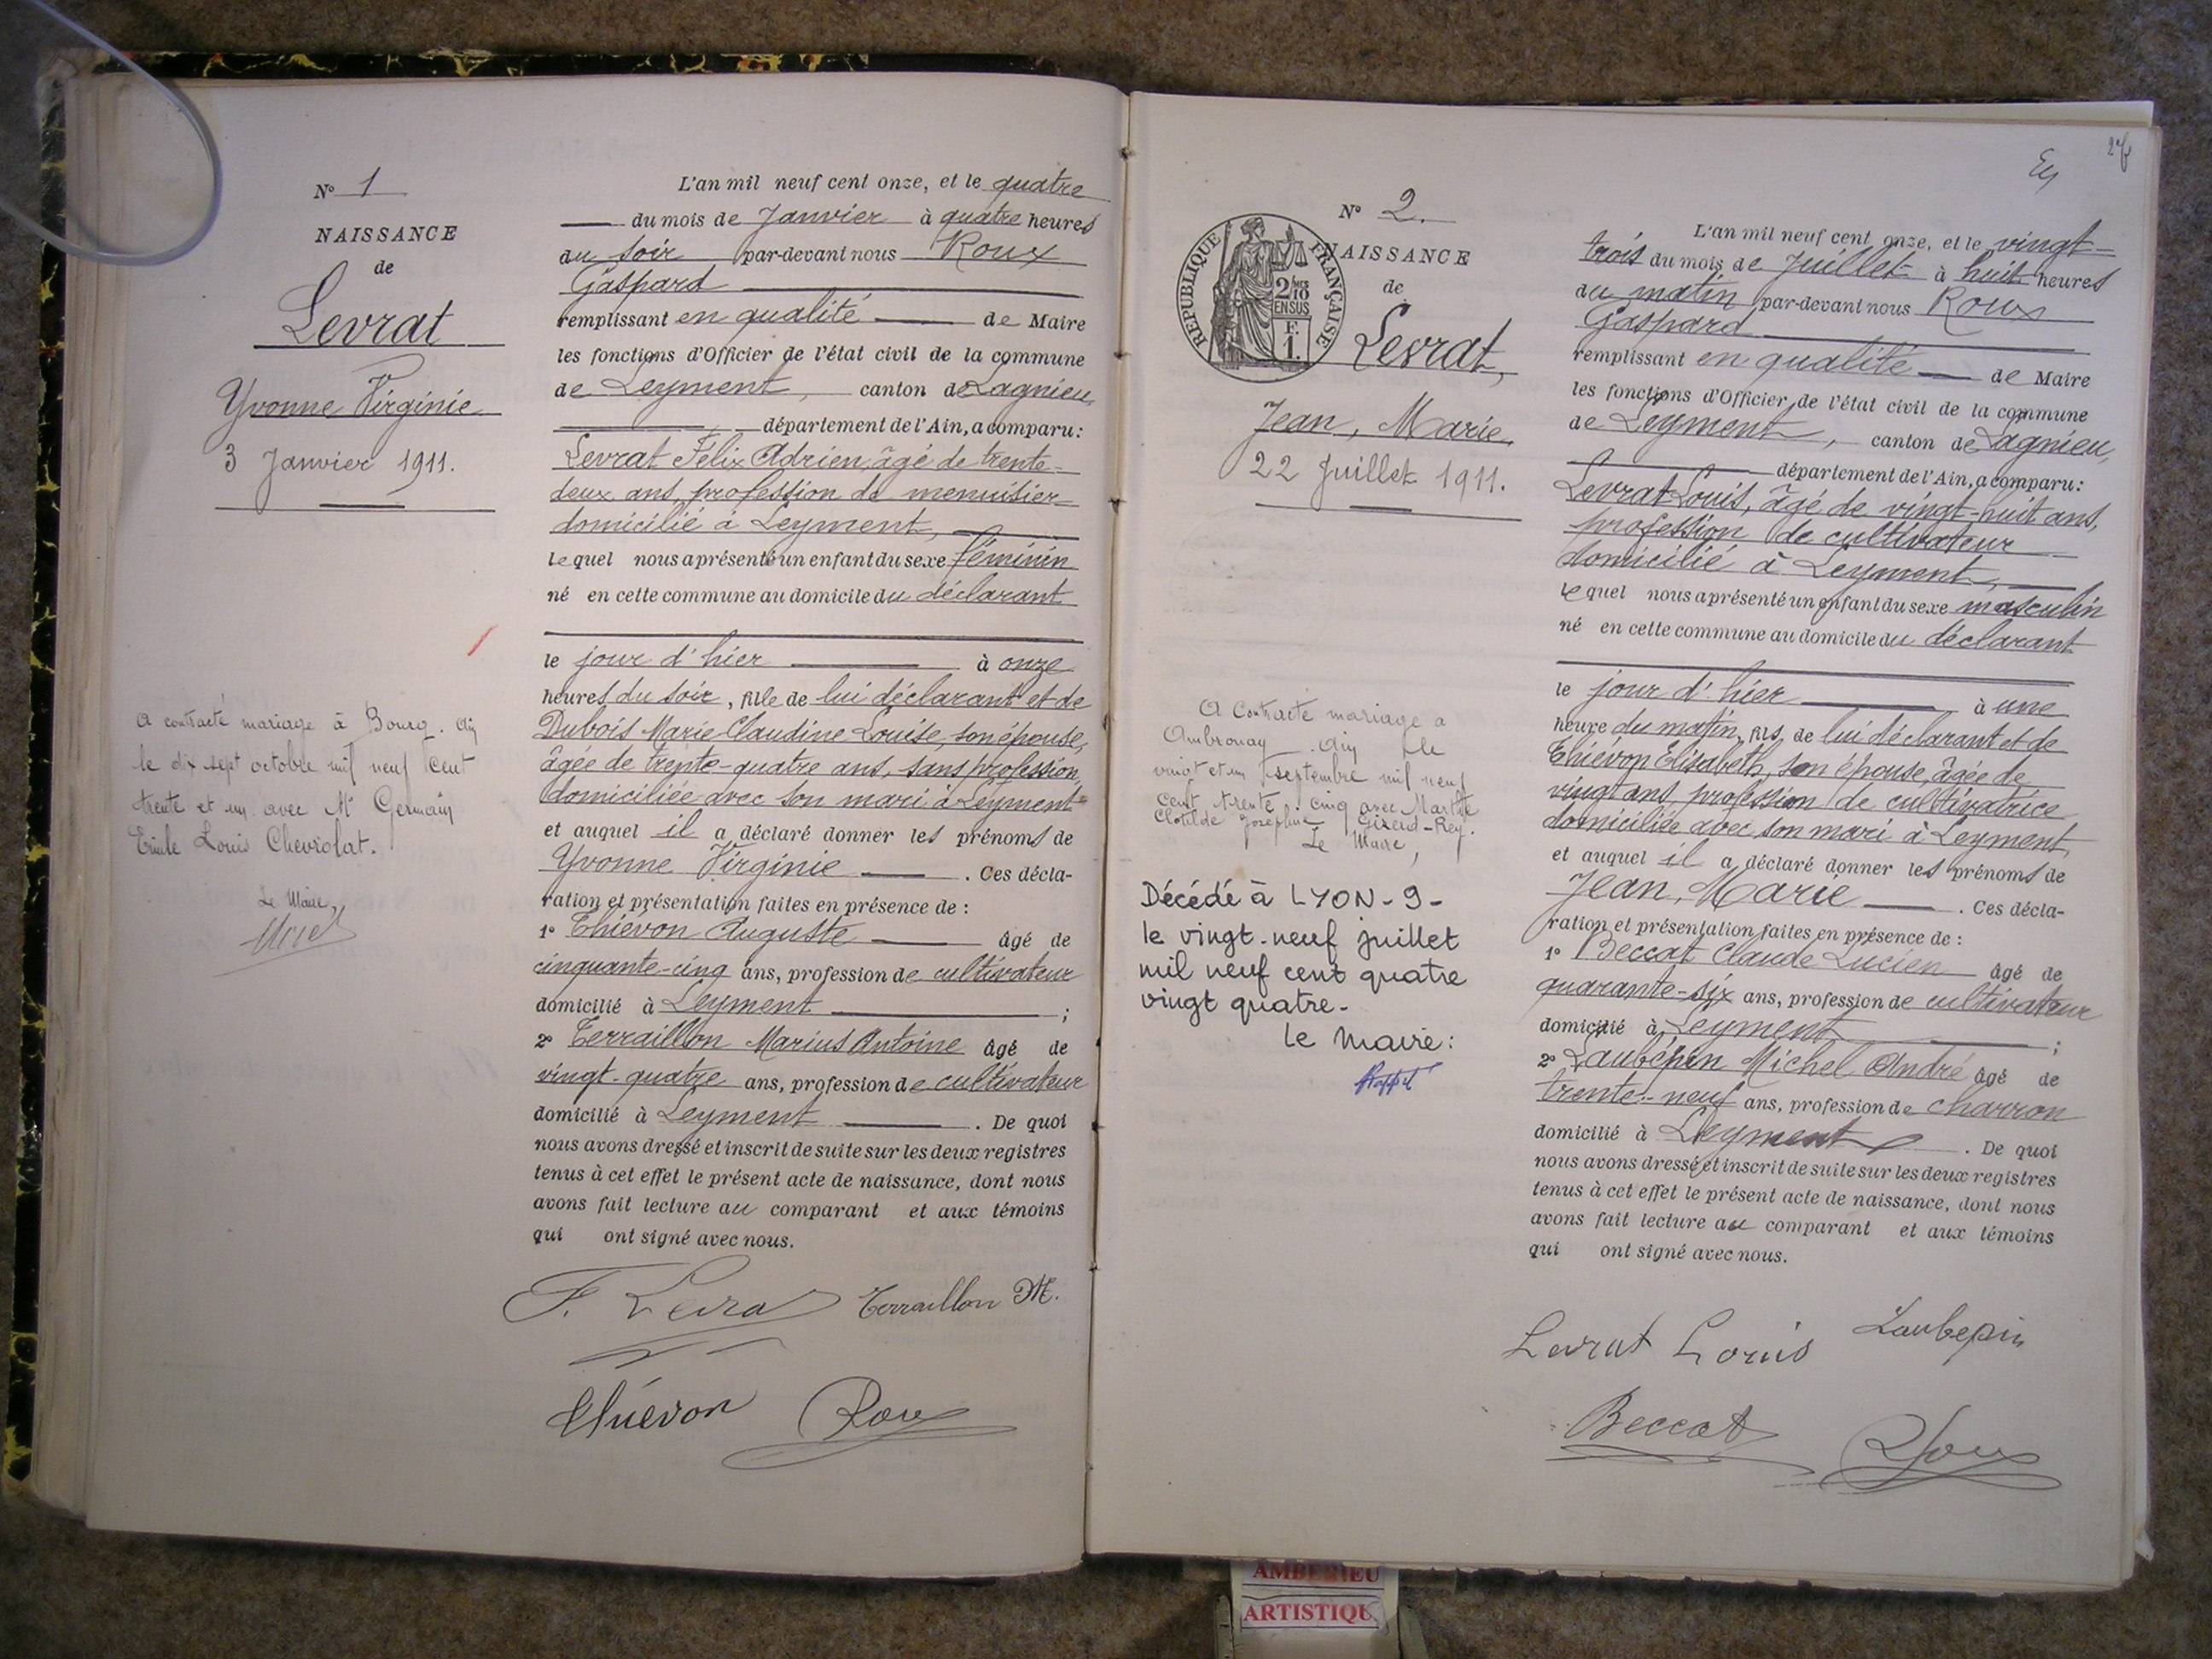 N° 1
NAISSANCE
de
Levrat
Yvonne Virginie
3 Janvier 1911.
A contracté mariage à Bourg. Ain
le dix sept octobre mil neuf cent
trente et un avec Mr Germain
Emile Louis Chevrolat.
Le Maire,
L'an mil neuf cent onze, et le quatre
du mois de Janvier à quatre heures
du soir par-devant nous Roux
Gaspard
remplissant en qualité de Maire
les fonctions d'Officier de l'état civil de la commune
de Leyment, canton de Lagnieu,
département de l'Ain, a comparu:
Levrat Félix Adrien, âgé de trente-
deux ans, profession de menuisier
domicilié à Leyment,
lequel nous a présenté un enfant du sexe féminin
né en cette commune au domicile du déclarant
le jour d'hier à onze
heures du soir, fille de lui déclarant et de
Dubois Marie Claudine Louise, son épouse,
âgée de trente-quatre ans, sans profession,
domiciliée avec son mari à Leyment
et auquel il a déclaré donner les prénoms de
Yvonne Virginie. Ces décla-
ration et présentation faites en présence de :
1° Thiévon Auguste âgé de
cinquante-cinq ans, profession de cultivateur
domicilié à Leyment ;
2° Terraillon Marius Antoine âgé de
vingt-quatre ans, profession de cultivateur
domicilié à Leyment. De quoi
nous avons dressé et inscrit de suite sur les deux registres
tenus à cet effet le présent acte de naissance, dont nous
avons fait lecture au comparant et aux témoins
qui ont signé avec nous.
F. Levrat Terraillon M.
Thiévon Roux
N° 2.
RÉPUBLIQUE FRANÇAISE
2/10 EN SUS
F. 1.
NAISSANCE
de
Levrat,
Jean, Marie.
22 Juillet 1911.
A Contracté mariage a
Ambronay Ain le
vingt et un septembre mil neuf
cent trente cinq avec Marthe
Clotilde Joséphine Girerd-Rey.
Le Maire,
Décédé à LYON-9-
le vingt-neuf juillet
mil neuf cent quatre
vingt quatre-
le Maire:
L'an mil neuf cent onze, et le vingt-
trois du mois de Juillet à huit heures
du matin par-devant nous Roux
Gaspard
remplissant en qualité de Maire
les fonctions d'Officier de l'état civil de la commune
de Leyment, canton de Lagnieu,
département de l'Ain, a comparu:
Levrat Louis, âgé de vingt-huit ans,
profession de cultivateur
domicilié à Leyment,
lequel nous a présenté un enfant du sexe masculin
né en cette commune au domicile du déclarant
le jour d'hier à une
heure du matin, fils de lui déclarant et de
Thiévon Elisabeth, son épouse, âgée de
vingt ans, profession de cultivatrice
domiciliée avec son mari à Leyment,
et auquel il a déclaré donner les prénoms de
Jean, Marie. Ces décla-
ration et présentation faites en présence de :
1° Beccat Claude Lucien âgé de
quarante-six ans, profession de cultivateur
domicilié à Leyment ;
2° Laubépin Michel André âgé de
trente-neuf ans, profession de charron
domicilié à Leyment. De quoi
nous avons dressé et inscrit de suite sur les deux registres
tenus à cet effet le présent acte de naissance, dont nous
avons fait lecture au comparant et aux témoins
qui ont signé avec nous.
Levrat Louis Laubepin
Beccat Roux
AMBERIEU
ARTISTIQU